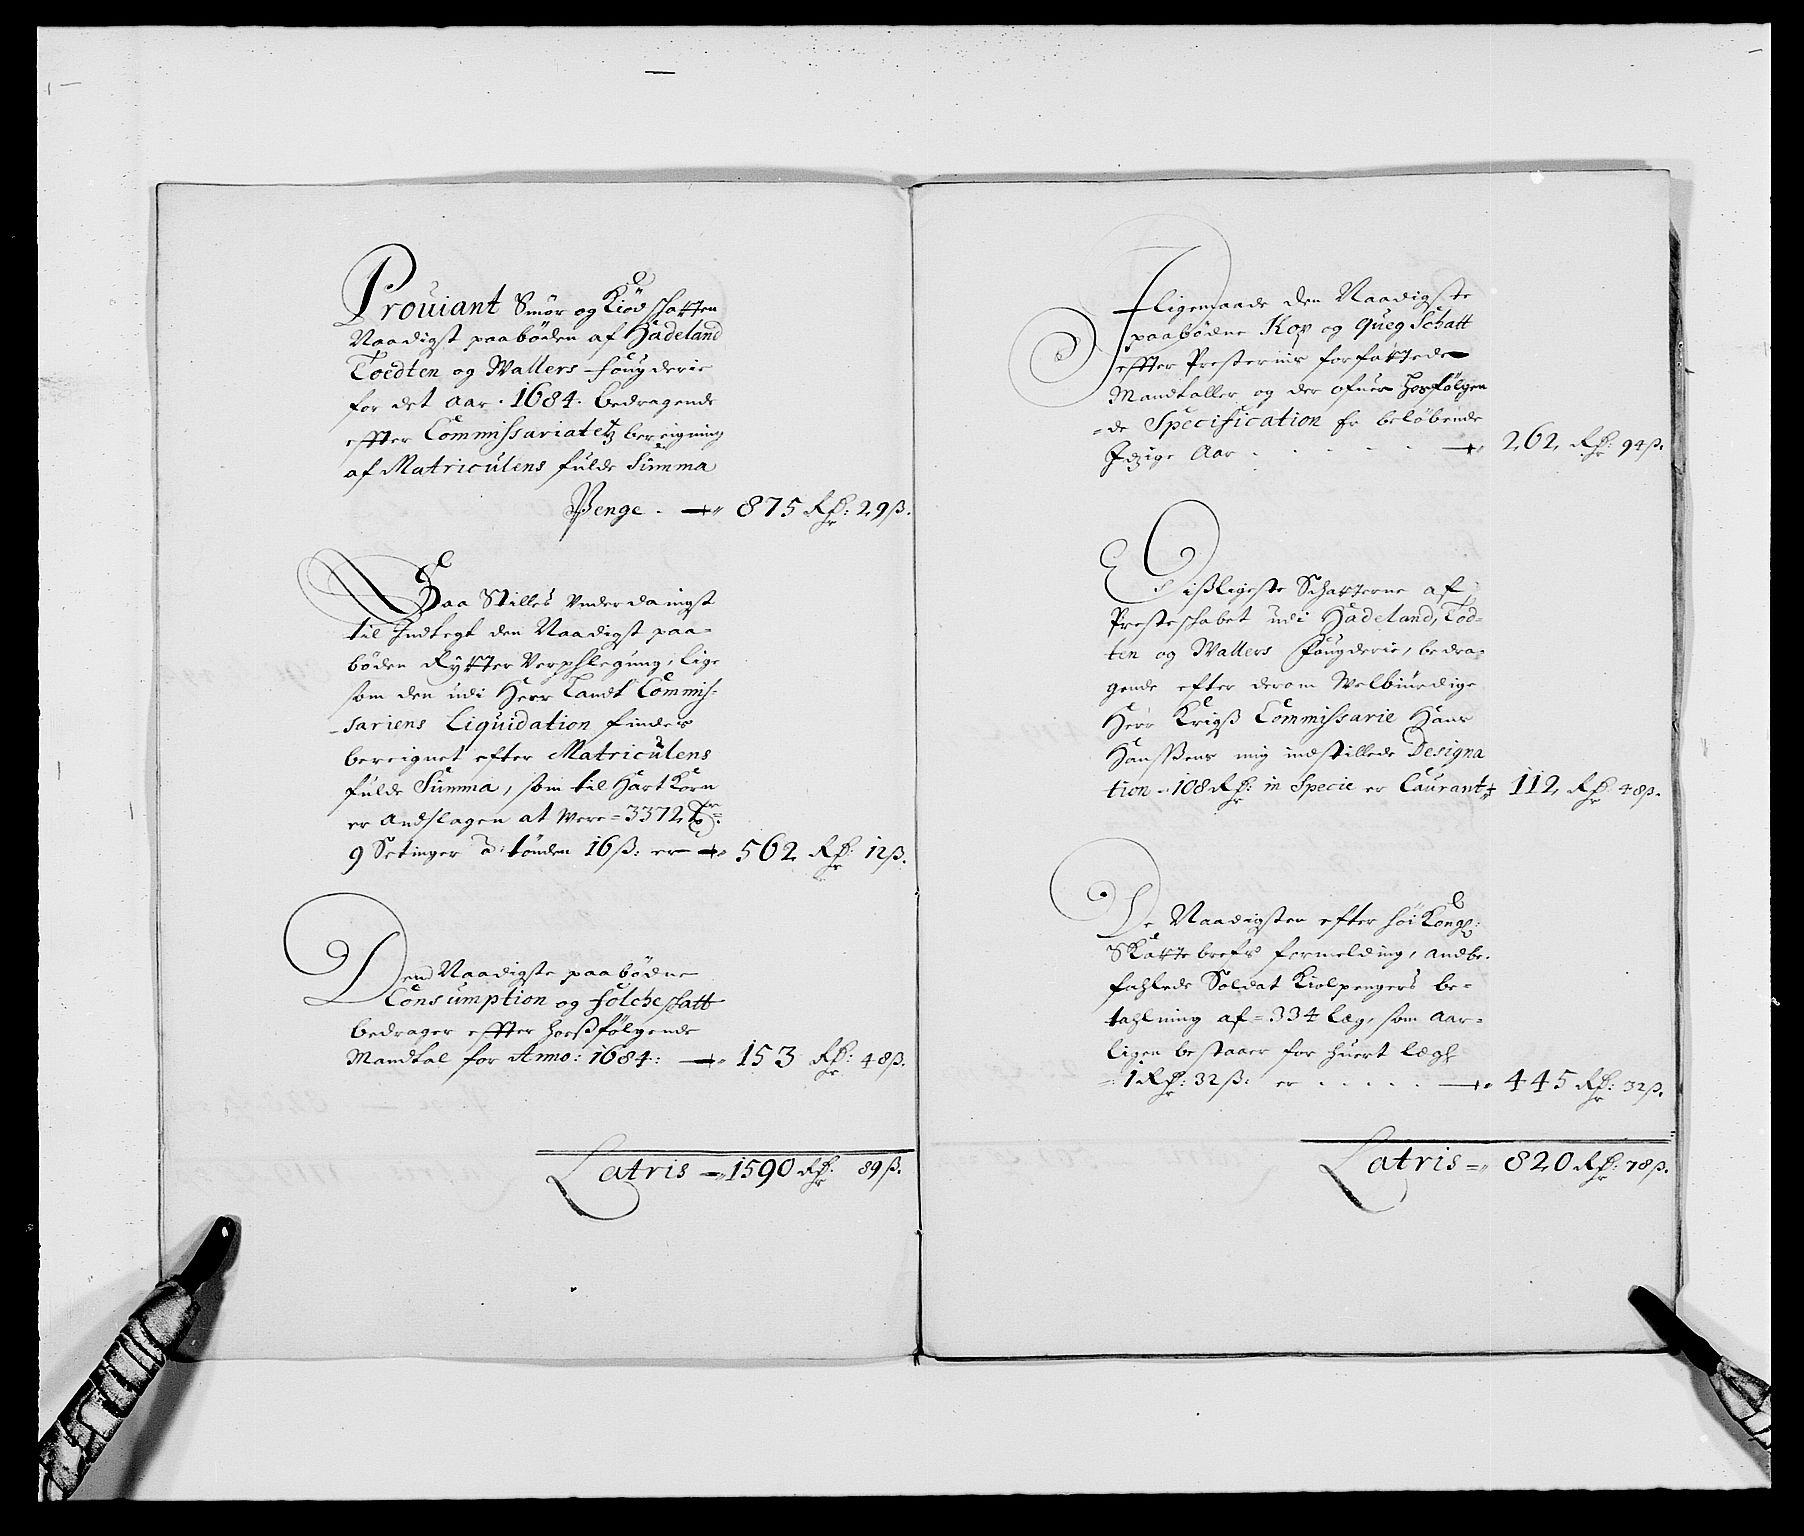 Prouiant Smör og Kiödschatten
Naadigst paaböden af Hadeland
Toedten og Wallers fougderie
for det aar 1684. bedragende
effter Commissariatetz bereigning
af Matriculens fulde Summa
Penge . 875 Rdr: 29 ß.
Saa Stilles Vnderdanigst
til Indtegt den Naadigst paa-
böden Rytter Verphlegung, lige
som den udi Herr Landt Commis-
sariens Liquidation findes
bereignet efter Matriculens
fulde Summa, som til Hart Korn
er Andslagen at Were = 3372 Tdr:
9 Setinger a: tönden 16 ß: er 562 Rdr: 12 ß.
Dend Naadigste paabödne
Consumption og folcheschatt
bedrager effter hossfölgende
Mandtal for Anno: 1684: 153 Rdr: 48 ß.
Latris 1590 Rdr: 89 ß.
I ligemaade den Naadigste
paabödne Kop og Queg Schatt
effter Presternis forfattede
Mandtaller og der ofuer hosfölgen
=de Specification er belöbende
Idzige Aar . . . . . 262 Rdr: 94 ß.
Dissligeste Schatterne af
Presteschabet udi Hadeland, Tod-
ten og Wallers fougderie, bedra-
gende efter derom Welbiurdige
Herr Krigs Commissarie Hans
Hanssens mig indstillede Designa
tion 108 Rdr: in Specie er Caurant 112 Rdr 48 ß.
De Naadigsten efter höi Kongl:
Skatte brefs formelding, andbe-
fahlede Soldat Kiolpengers be-
tahlning af = 334 læg, som aar-
ligen bestaaer for huert lægh
1 Rdr: 32 ß: er . . . . . 445 Rdr: 32 ß.
Latris 820 Rdr: 78 ß.